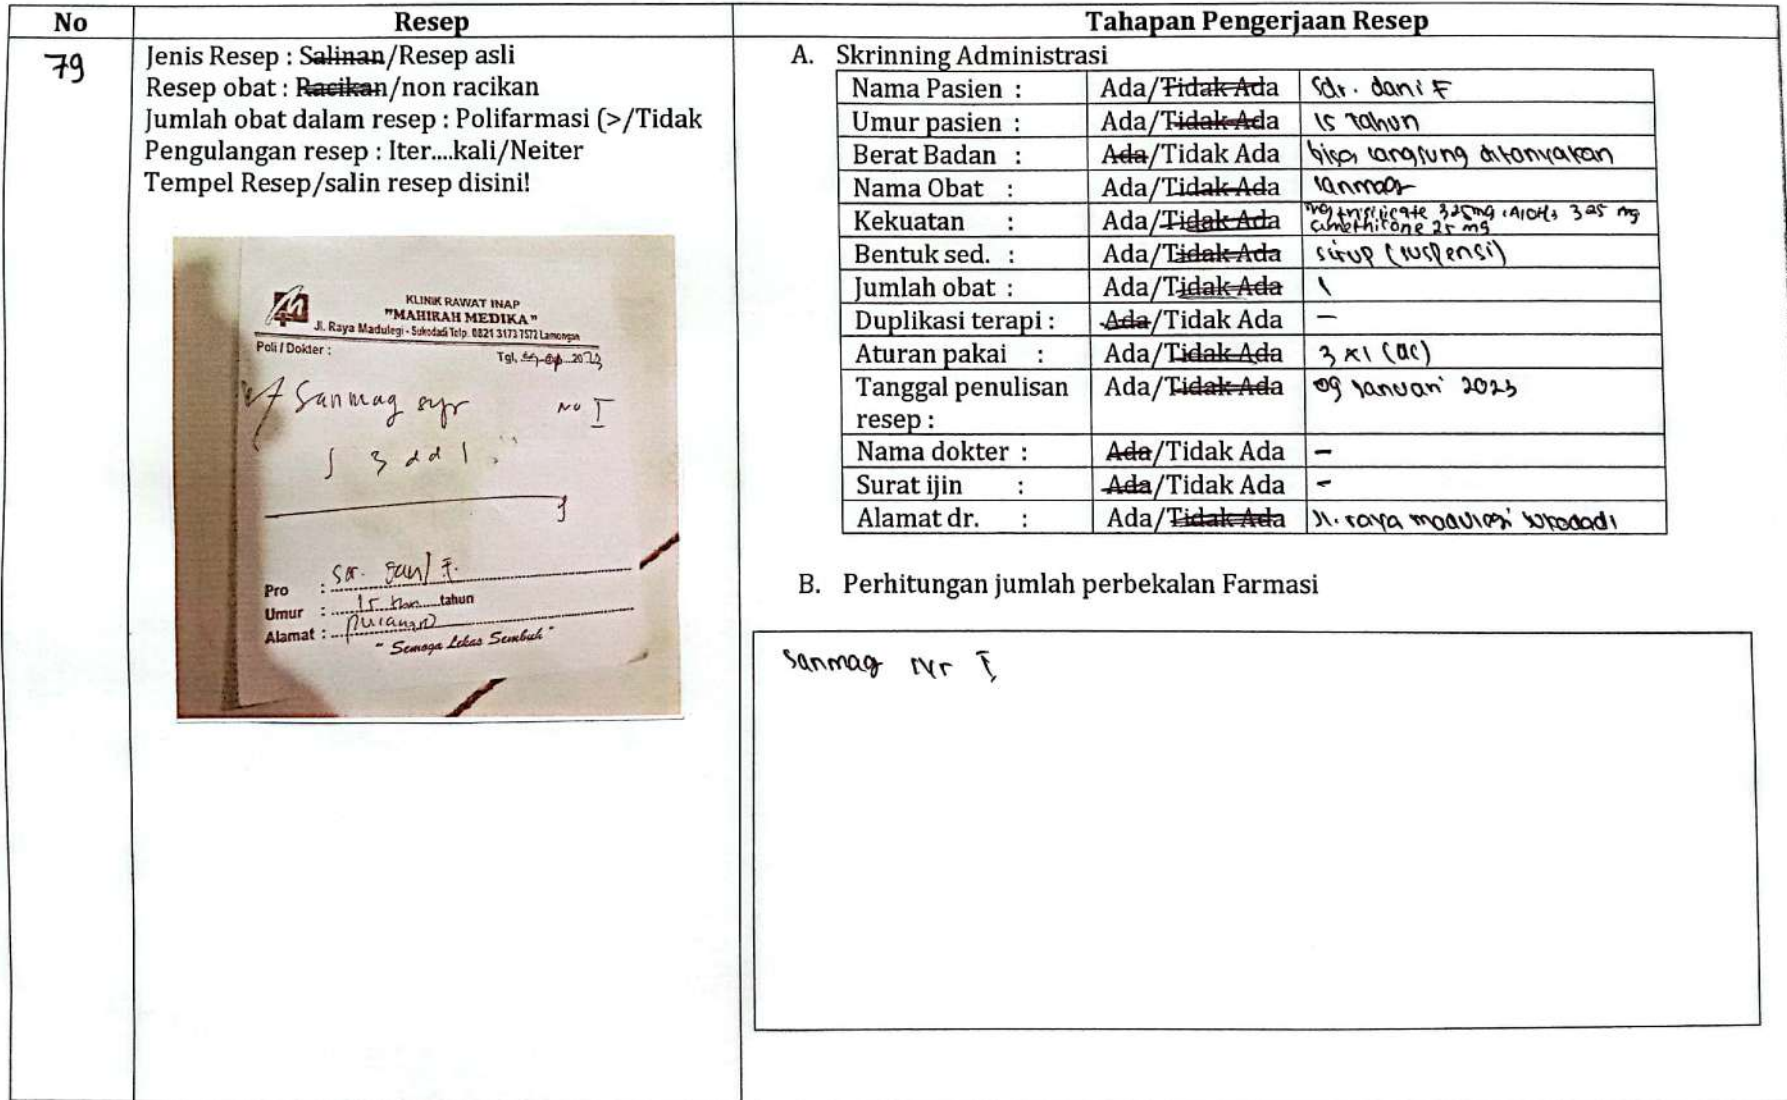 No
Resep
Tahapan Pengerjaan Resep
79
Jenis Resep : Salinan/Resep asli
Resep obat : Racikan/non racikan
Jumlah obat dalam resep : Polifarmasi (>/Tidak
Pengulangan resep : Iter....kali/Neiter
Tempel Resep/salin resep disini!
KLINIK RAWAT INAP
"MAHIRAH MEDIKA"
Jl. Raya Madulegi - Sukodadi Telp. 0821 3173 7572 Lamongan
Poli / Dokter :
Tgl, 20 23
Sanmag syr No I
3 dd 1
Pro : Sdr. Dani F.
Umur : 15 thn tahun
Alamat :
" Semoga Lekas Sembuh "
A. Skrinning Administrasi
Nama Pasien : Ada/Tidak Ada Sdr. dani F
Umur pasien : Ada/Tidak Ada 15 Tahun
Berat Badan : Ada/Tidak Ada bisa langsung ditanyakan
Nama Obat : Ada/Tidak Ada sanmag
Kekuatan : Ada/Tidak Ada Mg trisilicate 325mg, AlOH3 325 mg
simethicone 25 mg
Bentuk sed. : Ada/Tidak Ada sirup (suspensi)
Jumlah obat : Ada/Tidak Ada 1
Duplikasi terapi : Ada/Tidak Ada -
Aturan pakai : Ada/Tidak Ada 3x1 (ac)
Tanggal penulisan Ada/Tidak Ada 09 Januari 2023
resep :
Nama dokter : Ada/Tidak Ada -
Surat ijin : Ada/Tidak Ada -
Alamat dr. : Ada/Tidak Ada Jl. raya madulegi sukodadi
B. Perhitungan jumlah perbekalan Farmasi
Sanmag syr I